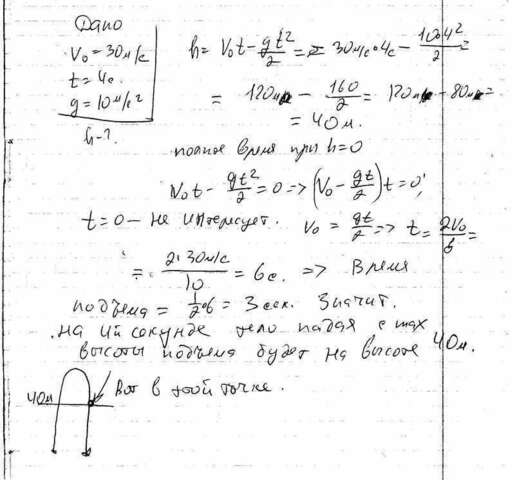 Дано
V₀ = 30 м/с
t = 4 с.
g = 10 м/с²
h - ?
h = V₀t - gt²/2 = 30 м/с·4с - 10·4²/2 =
= 120 м - 160/2 = 120 м - 80 м =
= 40 м.
полное время при h=0
V₀t - gt²/2 = 0 => (V₀ - gt/2) t = 0;
t = 0 - не интересует. V₀ = gt/2 => t = 2V₀/g =
= 2·30 м/с/10 = 6 с. => Время
подъема = 1/2·6 = 3 сек. Значит.
на 4й секунде тело падая с max
высоты подъема будет на высоте 40 м.
40м
Вот в этой точке.